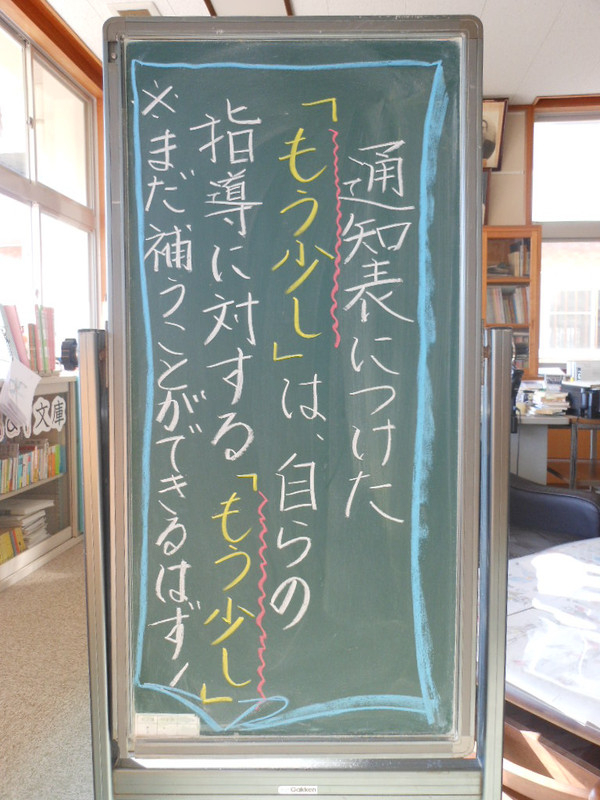 通知表につけた
「もう少し」は、自らの
指導に対する「もう少し」
※まだ補うことができるはず!
文庫
Gakken